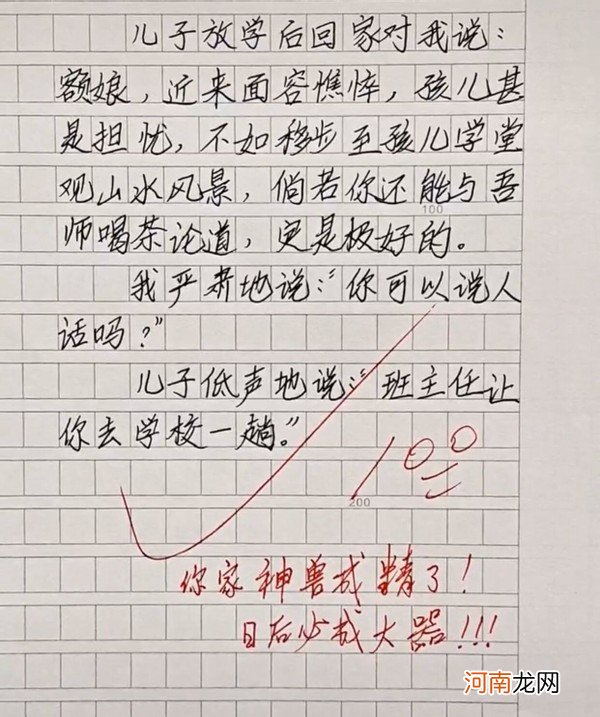 儿子放学后回家对我说：
额娘，近来面容憔悴，孩儿甚
是担忧，不如移步至孩儿学堂
观山水风景，倘若你还能与吾
100
师喝茶论道，更是极好的。
我严肃地说：“你可以说人
话吗？”
儿子低声地说：“班主任让
你去学校一趟。”
100
200
你家神兽成精了！
日后必成大器！！！
河南龙网